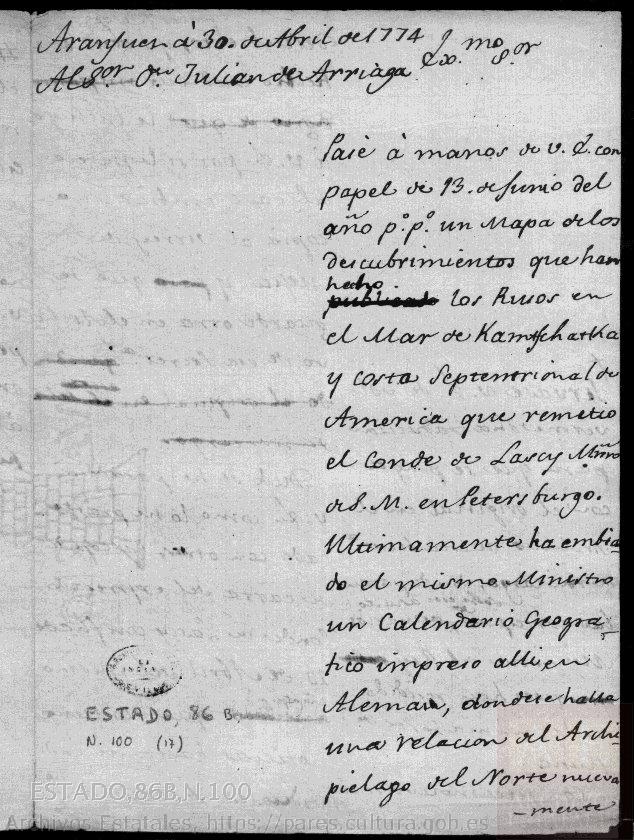 Aranjuez à 30. de Abril de 1774
Al S.or D.n Julian de Arriaga
Ex.mo S.or
Pasè à manos de V. E. con
papel de 13. de Junio del
año p.o p.o un Mapa de los
descubrimientos que han
hecho
publicado los Rusos en
el Mar de Kamtschatka
y costa Septentrional de
America que remetio
el Conde de Lascy Mñro
de S. M. en Petersburgo.
Ultimamente ha embia-
do el mismo Ministro
un Calendario Geogra-
fico impreso alli en
Aleman, donde se halla
una relacion del Archi-
pielago del Norte nueva
-mente
ESTADO, 86 B,
N. 100 (17)
ESTADO,86B,N.100
Archivos Estatales, https://pares.cultura.gob.es